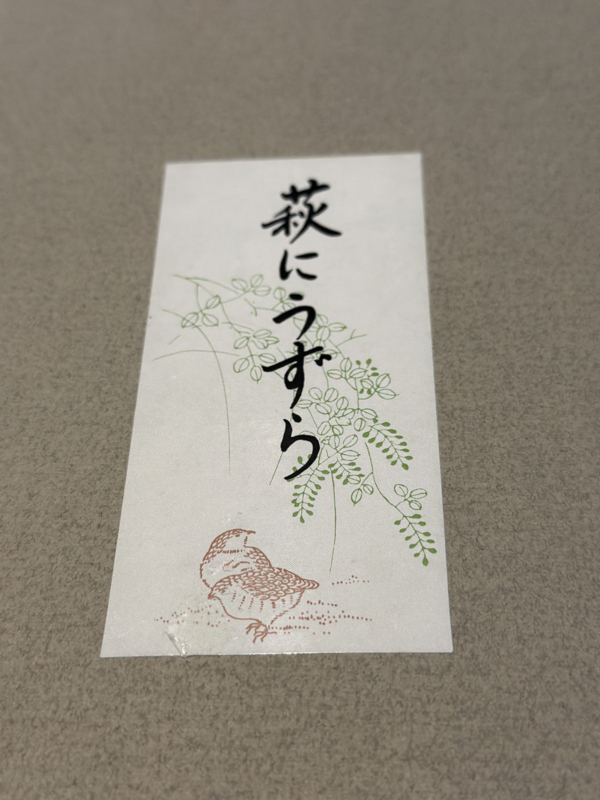 萩にうずら